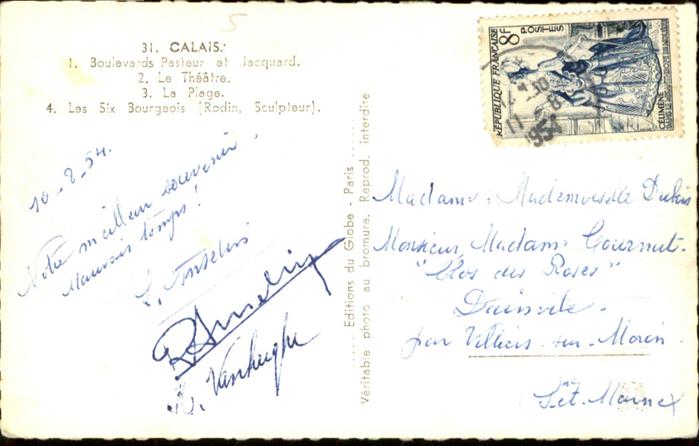 31. CALAIS.
1. Boulevards Pasteur et Jacquard.
2. Le Théâtre.
3. La Plage.
4. Les Six Bourgeois (Rodin, Sculpteur).
10-8-54.
Notre meilleur souvenir.
Mauvais temps!
L. Anselin
R Anselin
Vanheeghe
Editions du Globe - Paris
Véritable photo au bromure. Reprod. interdite
8F
POSTES
RÉPUBLIQUE FRANÇAISE
CÉLIMÈNE
1954
Madame, Mademoiselle
Monsieur Madame Gournut
"Clos des Roses"
par Villiers-sur-Morin
Set Marne